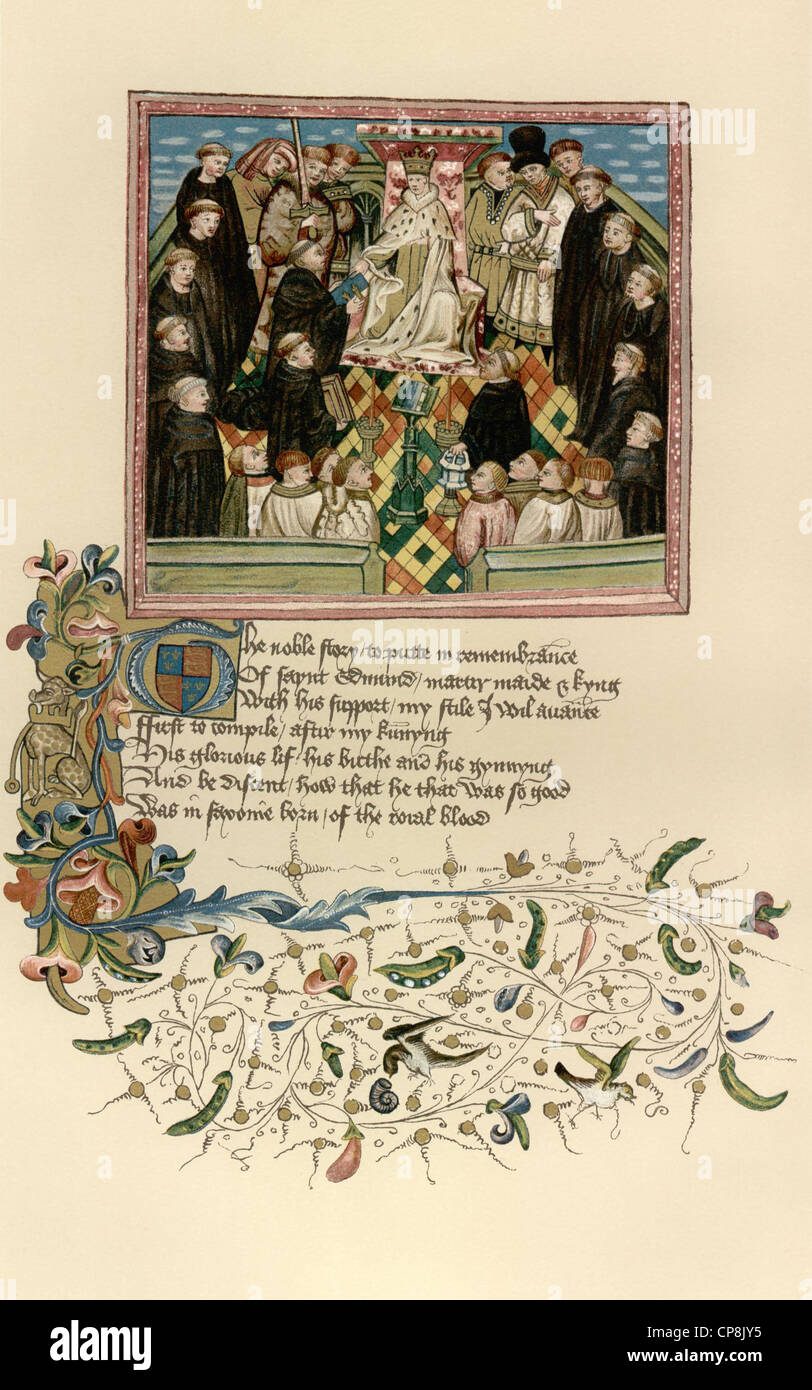 The noble story / to putte in remembrāce
Of saynt Edmund / martir maide & kyng
With his support / my stile I wil auāce
ffirst to compile / aftir my kūnyng
His glorious lif / his birthe and his gynnyng
And be discent / how that he that was so good
Was in saxonie born / of the roial blood
alamy
Image ID: CP8JY5
www.alamy.com